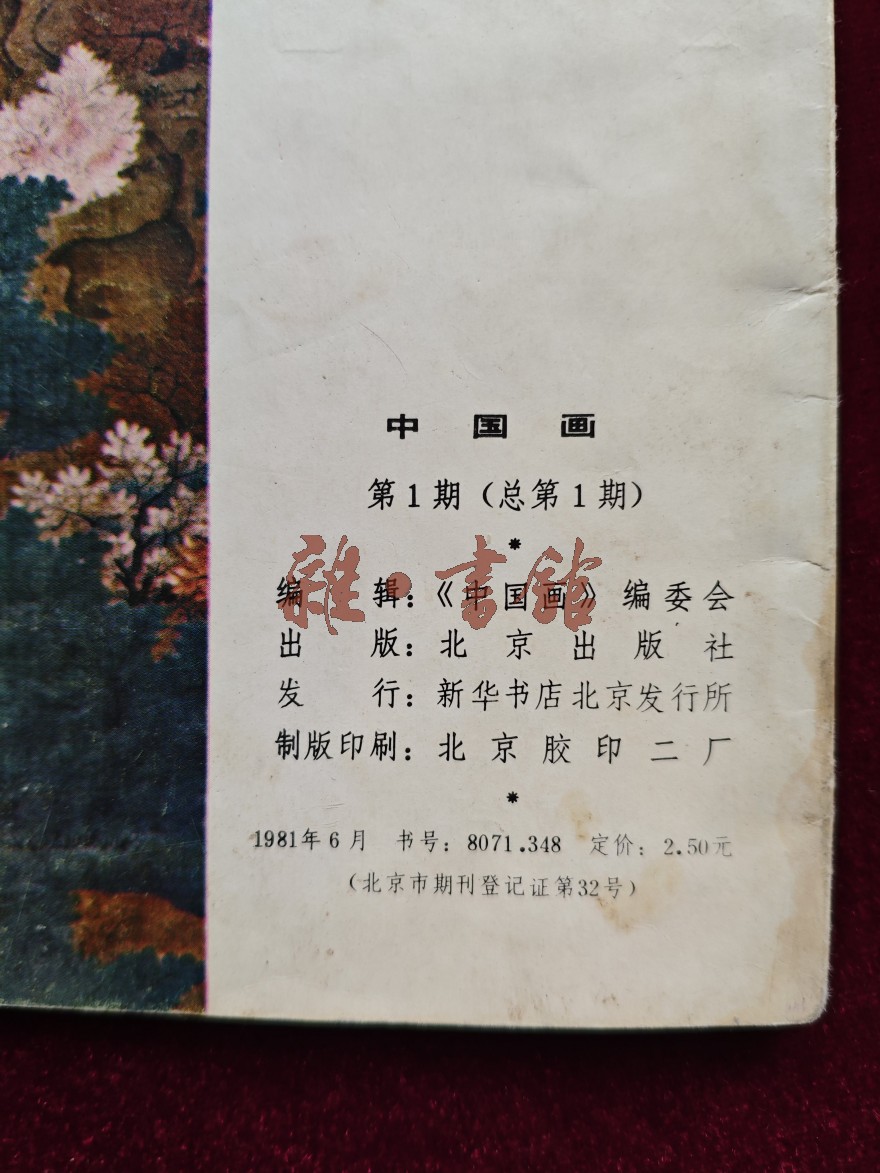 中国画
第1期（总第1期）
*
编辑：《中国画》编委会
出版：北京出版社
发行：新华书店北京发行所
制版印刷：北京胶印二厂
*
1981年6月 书号：8071.348 定价：2.50元
（北京市期刊登记证第32号）
雜·書館